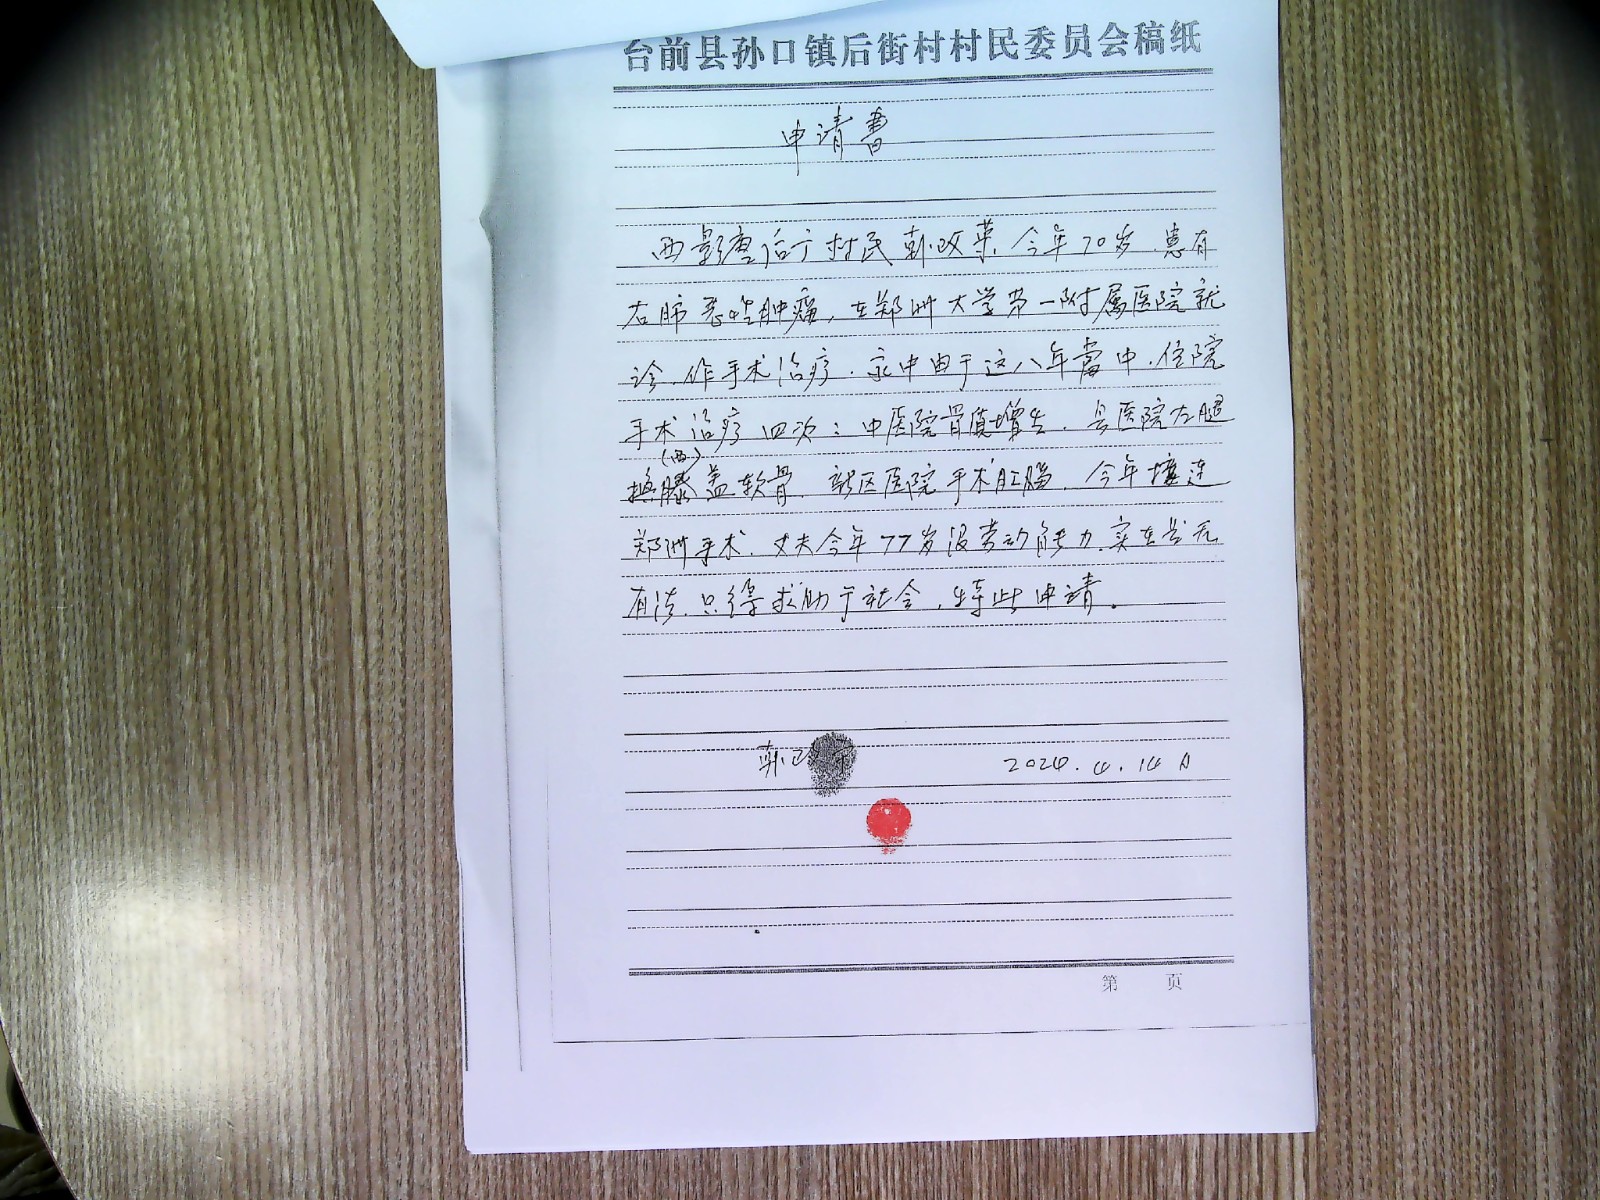 台前县孙口镇后街村村民委员会稿纸
申请书
西影唐后 村民 改英，今年70岁，患有
右肺恶性肿瘤，在郑州大学第一附属医院就
诊，作手术治疗，家中由于这八年 中，住院
手术治疗四次：中医院骨质增生，县医院左腿
换膝盖软骨，新区医院手术肛肠，今年接连
(两)
郑州手术，丈夫今年77岁没劳动能力，实在是无
有法，只得求助于社会，特此申请。
2024.4.14日
第 页